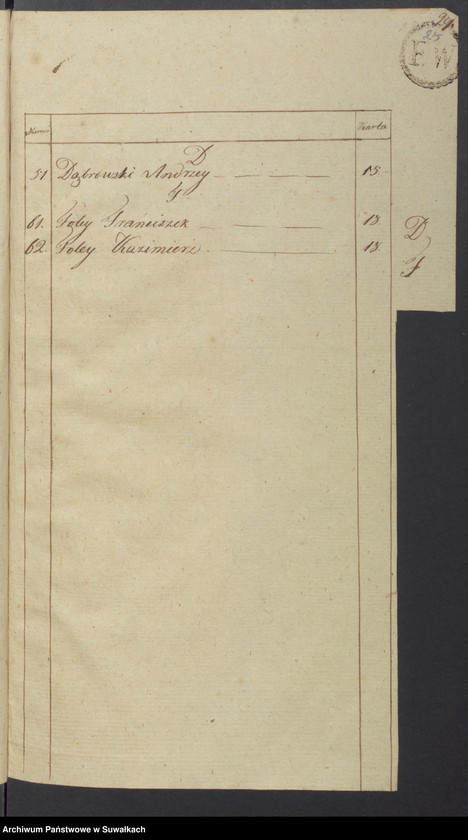 25
Numer Karta
D
51 Dąbrowski Andrzey 15.
F
61. Foley Franciszek 18.
62. Foley Kazimierz 18.
D
F
Archiwum Państwowe w Suwałkach